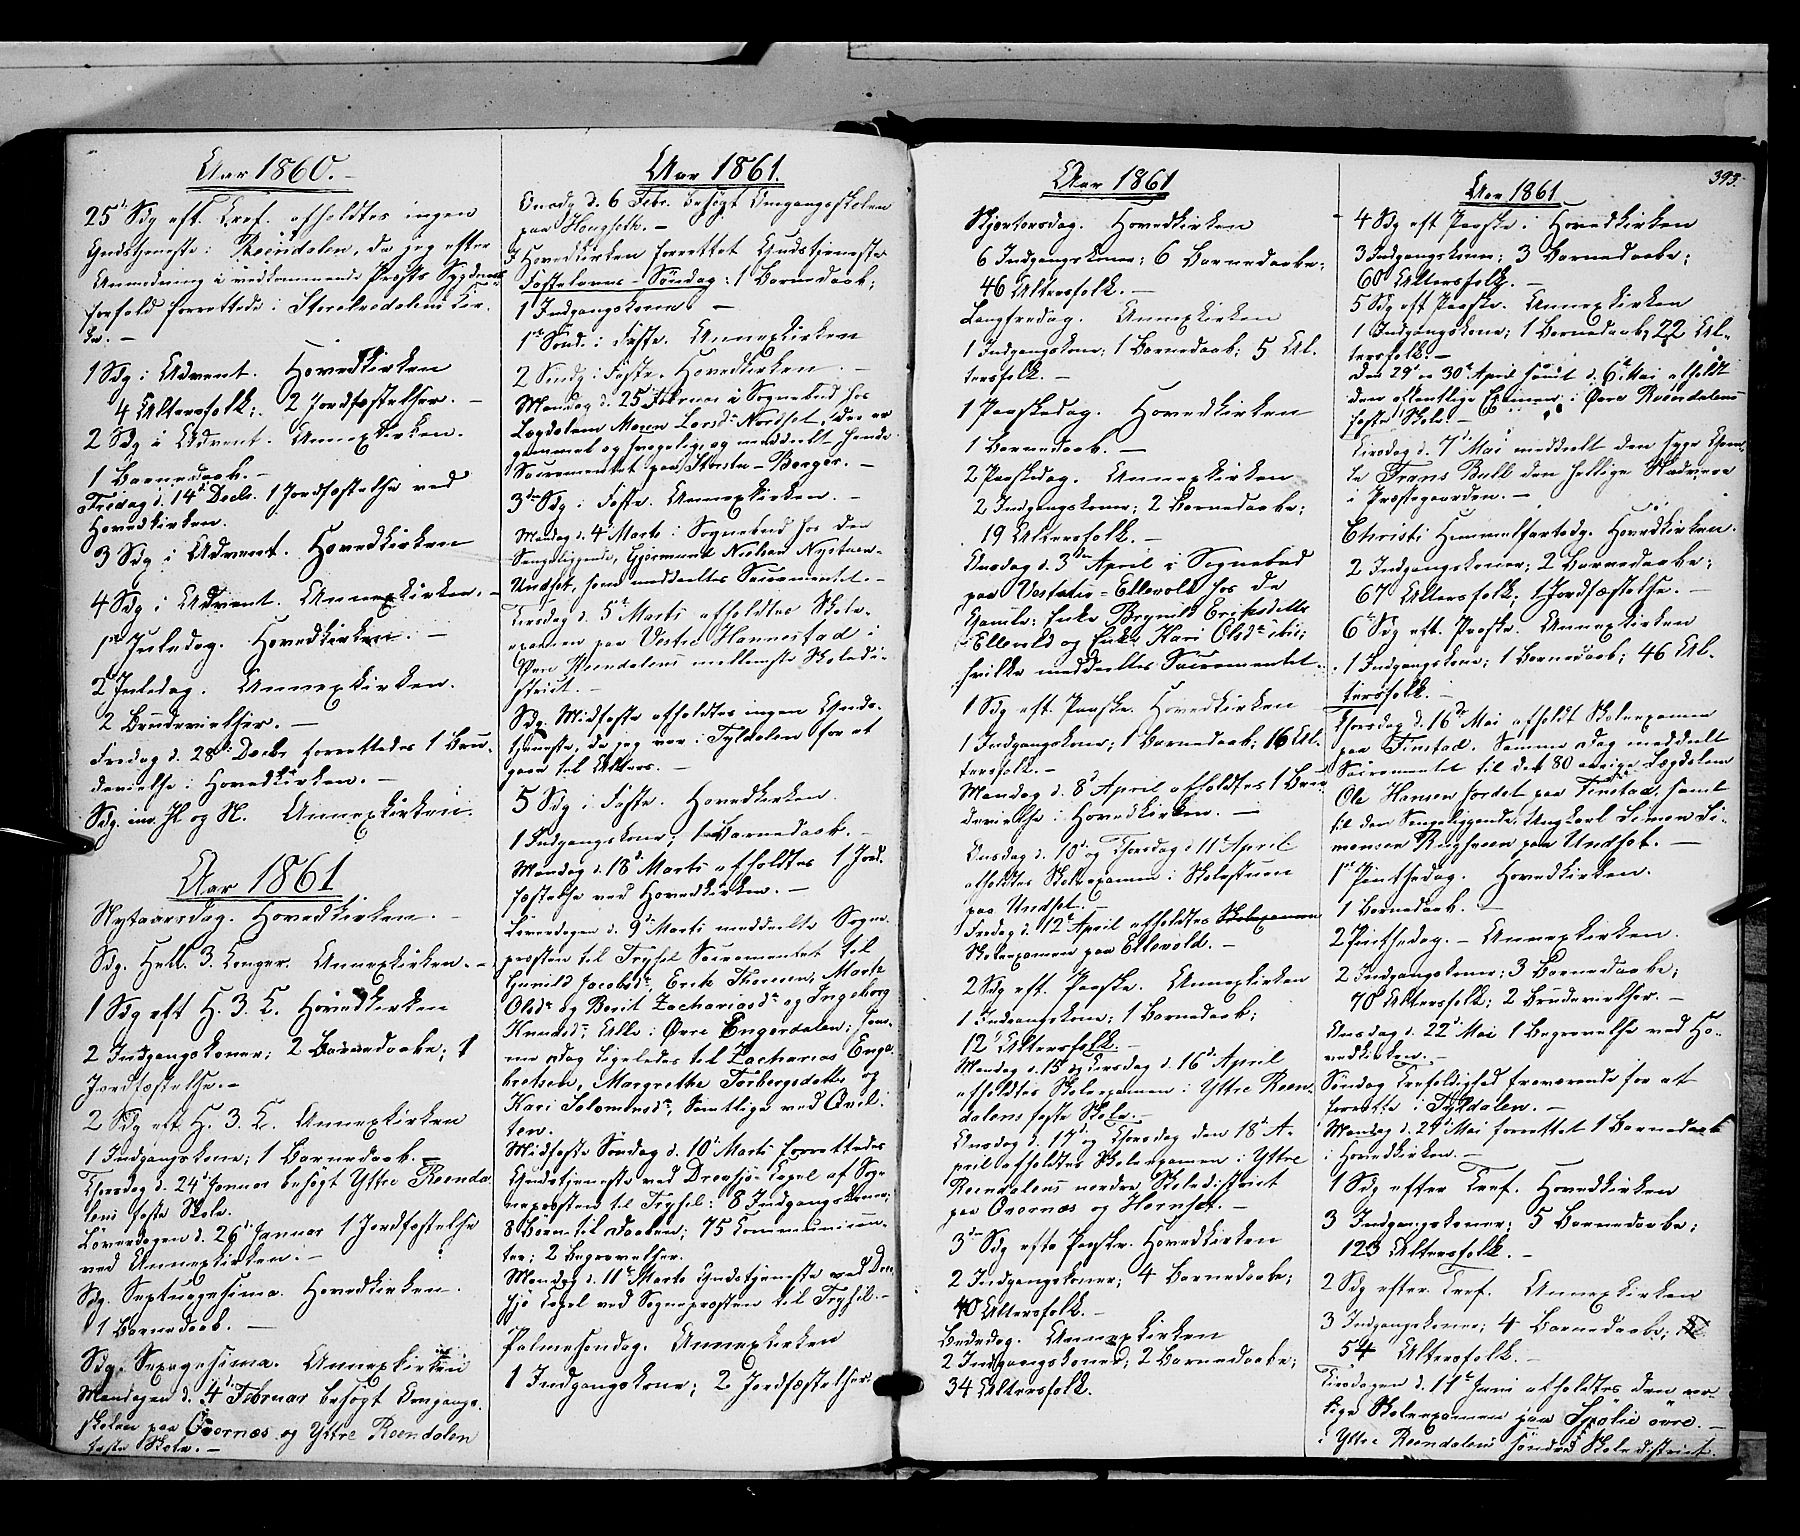 Aar 1860.-
25de Sdg eft. Tref. afholdtes ingen
Gudstjeneste i Reendalen, da jeg efter
Anmodning i vedkommende Præsts Sygdoms-
forhold forrettede i Storelvedalens Kir-
ke.-
1 Sdg i Advent. Hovedkirken
4 Altersfolk; 2 Jordfæstelser.-
2 Sdg i Advent. Annexkirken.
1 Barnedaab.-
Fredag d. 14de Decb. 1 Jordfæstelse ved
Hovedkirken.
3 Sdg i Advent. Hovedkirken
4 Sdg i Advent. Annexkirken.-
1ste Juledag. Hovedkirken.-
2 Juledag. Annexkirken.
2 Brudevielser.-
Fredag d. 28de Decbr forrettedes 1 Bru-
devielse i Hovedkirken.-
Sdg. im. Jl og N. Annexkirken.
Aar 1861
Nytaarsdag. Hovedkirken.-
Sdg. Hell. 3. Konger. Annexkirken.-
1 Sdg eft H. 3. K. Hovedkirken
2 Indgangskoner; 2 Barnedaabe; 1
Jordfæstelse.-
2 Sdg eft. H. 3. K. Annexkirken
1 Indgangskone; 1 Barnedaab.-
Thorsdag d. 24de Januar besøgt Yttre Reenda
lens faste Skole.
Løverdagen d. 26de Januar 1 Jordfæstelse
ved Annexkirken.-
Sdg. Septuagesima. Hovedkirken.
1 Barnedaab.-
Sdg. Sexagesima. Annexkirken
Mandagen d. 4de Februar besøgt Omgangs-
skolen paa Qvernæs og Yttre Reendalen
faste Skole.-
Aar 1861.
Onsdg d. 6 Febr. besøgt Omgangsskolen
paa Haugseth.-
I Hovedkirken forrettet Gudstjeneste
Fastelavns-Søndag: 1 Barnedaab;
1 Indgangskone.-
1ste Sønd. i Faste. Annexkirken
2 Søndg i Faste. Hovedkirken.-
Mandag d. 25 Februar i Sognebud hos
Lægdalem Maren Larsdr Nordset, der er
gammel og svagelig og meddeelt hende
Sacramentet paa Storstu-Berger.-
3die Sdg i Faste. Annexkirken.-
Mandag d. 4de Marts i Sognebud hos den
Sengeliggende, Gjermund Nielsen Nystuen-
Undset, hvem meddeeltes Sacramentet.-
Tirsdag d. 5te Marts afholdtes Skole-
examen paa Vestre Hannestad i
Øvre Reendalens mellemste Skoledi-
strict.-
Sdg. Midfaste afholdtes ingen Guds-
tjeneste, da jeg var i Tyldalen for at
gaae til Alters.-
5 Sdg i Faste. Hovedkirken
1 Indgangskone; 1 Barnedaab.-
Mandag d. 18de Marts afholdtes 1 Jord-
fæstelse ved Hovedkirken.-
Løverdagen d. 9de Marts meddeelte Sogne-
præsten til Trysil Sacramentet til
Gunild Jacobsdr, Erik Thoresen, Marte
Olsdr og Berit Zachariasdr og Ingeborg
Knudsdr, Alle i Øvre Engerdalen; sam-
me Dag ligeledes til Zacharias Enge-
bretsen, Margrethe Torbergsdatter og
Kari Salomonsdr, Samtlige ved Qvil-
ten.
Midfaste Søndag d. 10de Marts forrettedes
Gudstjeneste ved Drevsjø Capel af Sog-
nepræsten til Trysil: 8 Indgangskoner;
8 Børn til Daaben; 75 Communican-
ter; 2 Begravelser.
Mandag d. 11te Marts Gudstjeneste ved Drev-
sjø Capel ved Sognepræsten til Trysil.-
Palmesøndag. Annexkirken
1 Indgangskone; 2 Jordfæstelser
Aar 1861
Skjærtorsdag. Hovedkirken
6 Indgangskoner; 6 Barnedaabe;
46 Altersfolk.-
Langfredag. Annexkirken
1 Indgangskone; 1 Barnedaab; 5 Al-
tersfolk.-
1 Paaskedag. Hovedkirken
1 Barnedaab.-
2 Paaskedag. Annexkirken
2 Indgangskoner; 2 Barnedaabe;
19 Altersfolk.-
Onsdag d. 3die April i Sognebud
paa Ellevold hos de
Gamle: Enke Brynild Eriksdatter
Ellevold og Enke Kari Olsdr ibid;
hvilke meddeeltes Sacramentet.
1 Sdg eft. Paaske. Hovedkirken
1 Indgangskone; 1 Barnedaab; 16 Al-
tersfolk.-
Mandag d. 8de April afholdtes 1 Bru-
devielse i Hovedkirken.-
Onsdag d. 10de og Thorsdag d 11te April
afholdtes Skoleexamen i Skolestuen
paa Undset.-
Fredag d. 12te April afholdtes Skoleexamen
Skoleexamen paa Ellevold.-
2 Sdg eft. Paaske. Annexkirken
1 Indgangskone; 1 Barnedaab;
12 Altersfolk.-
Mandag d. 15 og Tirsdag d. 16de April
afholdtes Skoleexamen i Yttre Reen-
dalens faste Skole.-
Onsdag d. 17de og Thorsdag den 18de A-
pril afholdtes Skoleexamen i Yttre
Reendalens nordre Skoledistrict
paa Qvernæs og Hornset.-
3die Sdg efter Paaske. Hovedkirken
2 Indgangskoner; 4 Barnedaabe;
40 Altersfolk.-
Bededag. Annexkirken
2 Indgangskoner; 2 Barnedaabe;
34 Altersfolk.
393.
Aar 1861
4 Sdg eft Paaske i Hovedkirken
3 Indgangskoner; 3 Barnedaabe;
60 Altersfolk.-
5 Sdg eft Paaske. Annexkirken
1 Indgangskone; 1 Barnedaab; 22 Al-
tersfolk.-
Den 29de og 30te April samt d. 6te Mai afholdt
den offentlige Examen i Øvre Reendalens
faste Skole.-
Tirsdag d. 7de Mai meddeelt den syge Gam-
le Frans Bull den hellige Nadvere
i Præstegaarden.-
Christi Himmelfartsdg. Hovedkirken.
2 Indgangskoner; 2 Barnedaabe;
67 Altersfolk; 1 Jordfæstelse.-
6te Sdg eft. Paaske. Annexkirken
1 Indgangskone; 1 Barnedaab; 46 Al-
tersfolk.-
Thorsdag d. 16de Mai afholdt Skoleexamen
paa Finstad. Samme Dag meddeelt
Sacramentet til det 80 aarige Lægdalem
Ole Hansen Jordet paa Finstad, samt
til den Sengeliggende, Ungkarl Simen Si-
mensen Ringsveen paa Undset.-
1ste Pintsedag. Hovedkirken.
1 Barnedaab.-
2 Pintsedag.- Annexkirken.
2 Indgangskoner; 3 Barnedaabe;
70 Altersfolk; 2 Brudevielser.-
Onsdag d. 22de Mai 1 Begravelse ved Ho-
vedkirken.-
Søndag Trefoldighed fraværende for at
forrette i Tyldalen.-
Mandag d. 27de Mai forrettet 1 Barnedaab
i Hovedkirken.-
1 Sdg efter Tref. Hovedkirken
3 Indgangskoner; 5 Barnedaabe;
123 Altersfolk.-
2 Sdg efter Tref. Annexkirken
3 Indgangskoner; 4 Barnedaabe;
54 Altersfolk.-
Tirsdagen d. 11te Juni afholdtes den aar-
lige Skoleexamen paa Sjølie øvre.-
i Yttre Reendalens søndre Skoledistrict.